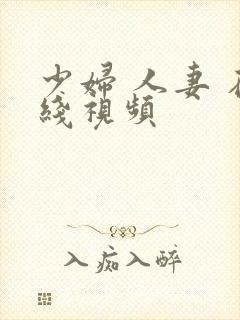 少婦 人妻 在
綫視頻
入痴入醉